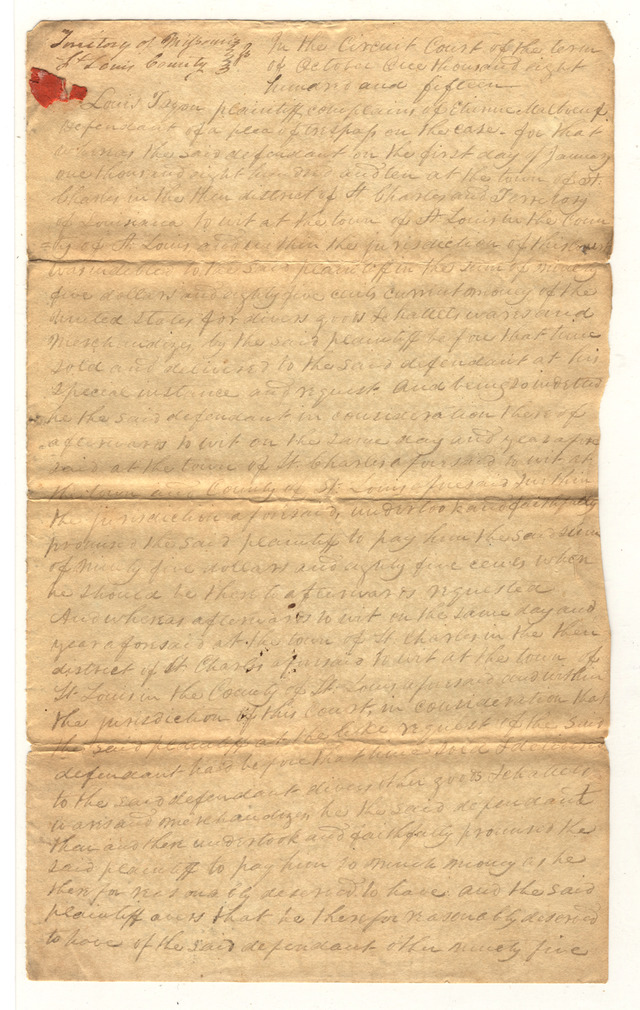 Territory of Missouri
St Louis County
In the Circuit Court of the term
of October One thousand eight
hundred and fifteen
Louis plaintiff complains of Etienne
defendant of a plea of trespass on the case - for that
whereas the said defendant on the first day of January
one thousand eight hundred and ten at the town of St
Charles in the then district of St Charles and Territory
of Louisiana to wit at the town of St Louis in the Coun
=ty of St Louis and within the jurisdiction of this court
was indebted to the said plaintiff in the sum of ninety
five dollars and eighty five cents current money of the
United States for divers goods & chattels wares and
Merchandizes by the said plaintiff before that time
sold and delivered to the said defendant at his
special instance and request And being so indebted
he the said defendant in consideration thereof
afterwards to wit on the same day and year afore
said at the town of St Charles aforesaid to wit at
the town and County of St Louis aforesaid within
the jurisdiction aforesaid, undertook and faithfully
promised the said plaintiff to pay him the said sum
of ninety five dollars and eighty five cents when
he should be thereto afterwards requested
And whereas afterwards to wit on the same day and
year aforesaid at the town of St Charles in the then
district of St Charles aforesaid to wit at the town of
St Louis in the County of St Louis aforesaid and within
the jurisdiction of this Court, in consideration that
the said plaintiff at the like request of the said
defendant had before that time sold & delivered
to the said defendant divers other goods & chattels
wares and merchandizes he the said defendant
then and there undertook and faithfully promised the
said plaintiff to pay him so much money as he
therefor reasonably deserved to have and the said
plaintiff avers that he therefor reasonably deserved
to have of the said defendant other ninety five